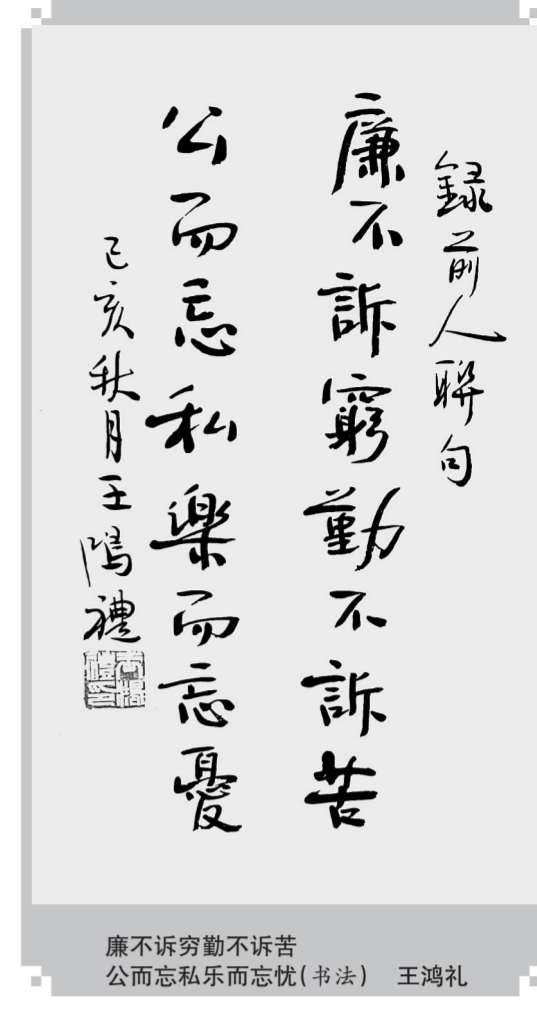 録前人聯句
廉不訴窮勤不訴苦
公而忘私樂而忘憂
己亥秋月王鴻禮
廉不诉穷勤不诉苦
公而忘私乐而忘忧(书法) 王鸿礼